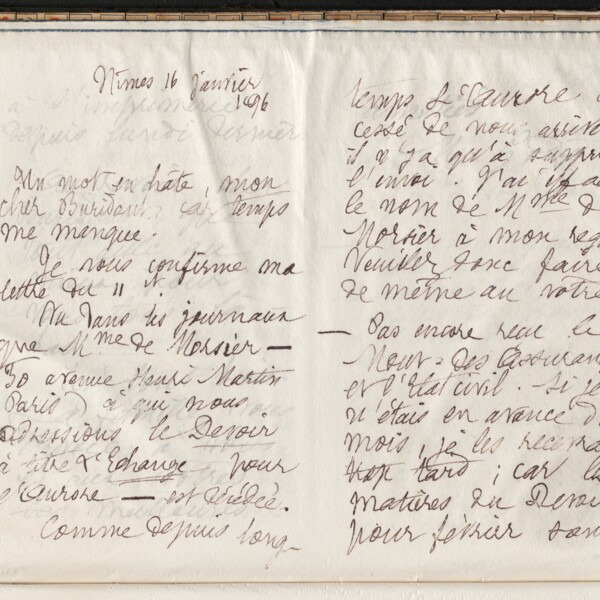 Nîmes 16 Janvier
1896
Un mot en hâte, mon
cher Buridant, car temps
me manque.
Je vous confirme ma
lettre du 11.
Vu dans les journaux
que Mme de Morsier —
30 avenue Henri Martin
Paris) à qui nous
adressions le Devoir
à titre d'Echange pour
l'Aurore — est décédée.
Comme depuis long-
temps L'Aurore a
cessé de nous arriver
il n'y a qu'à
l'envoi. J'ai
le nom de Mme de
Morsier à mon
Veuillez donc faire
de même au vôtre
— Pas encore recu le
Mouvt des
et l'Etat civil. Si je
n'étais en avance d
mois, je les
trop tard ; car les
matières du Devoir
pour février sont